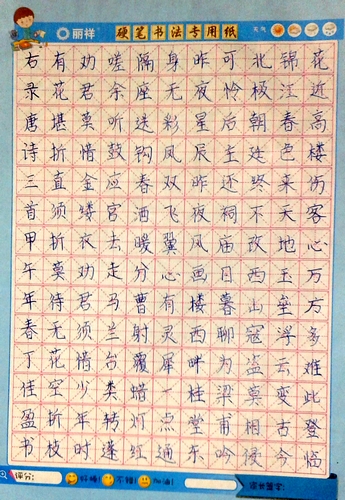 丽祥
硬笔书法专用纸
天气
花近高楼伤客心万方多难此登临
锦江春色来天地玉垒浮云变古今
北极朝廷终不改西山寇盗莫相侵
可怜后主还祠庙日暮聊为梁甫吟
昨夜星辰昨夜风画楼西畔桂堂东
身无彩凤双飞翼心有灵犀一点通
隔座送钩春酒暖分曹射覆蜡灯红
嗟余听鼓应官去走马兰台类转蓬
劝君莫惜金缕衣劝君须惜少年时
有花堪折直须折莫待无花空折枝
右录唐诗三首甲午年春丁佳盈书
评分:
好棒!
不错!
加油!